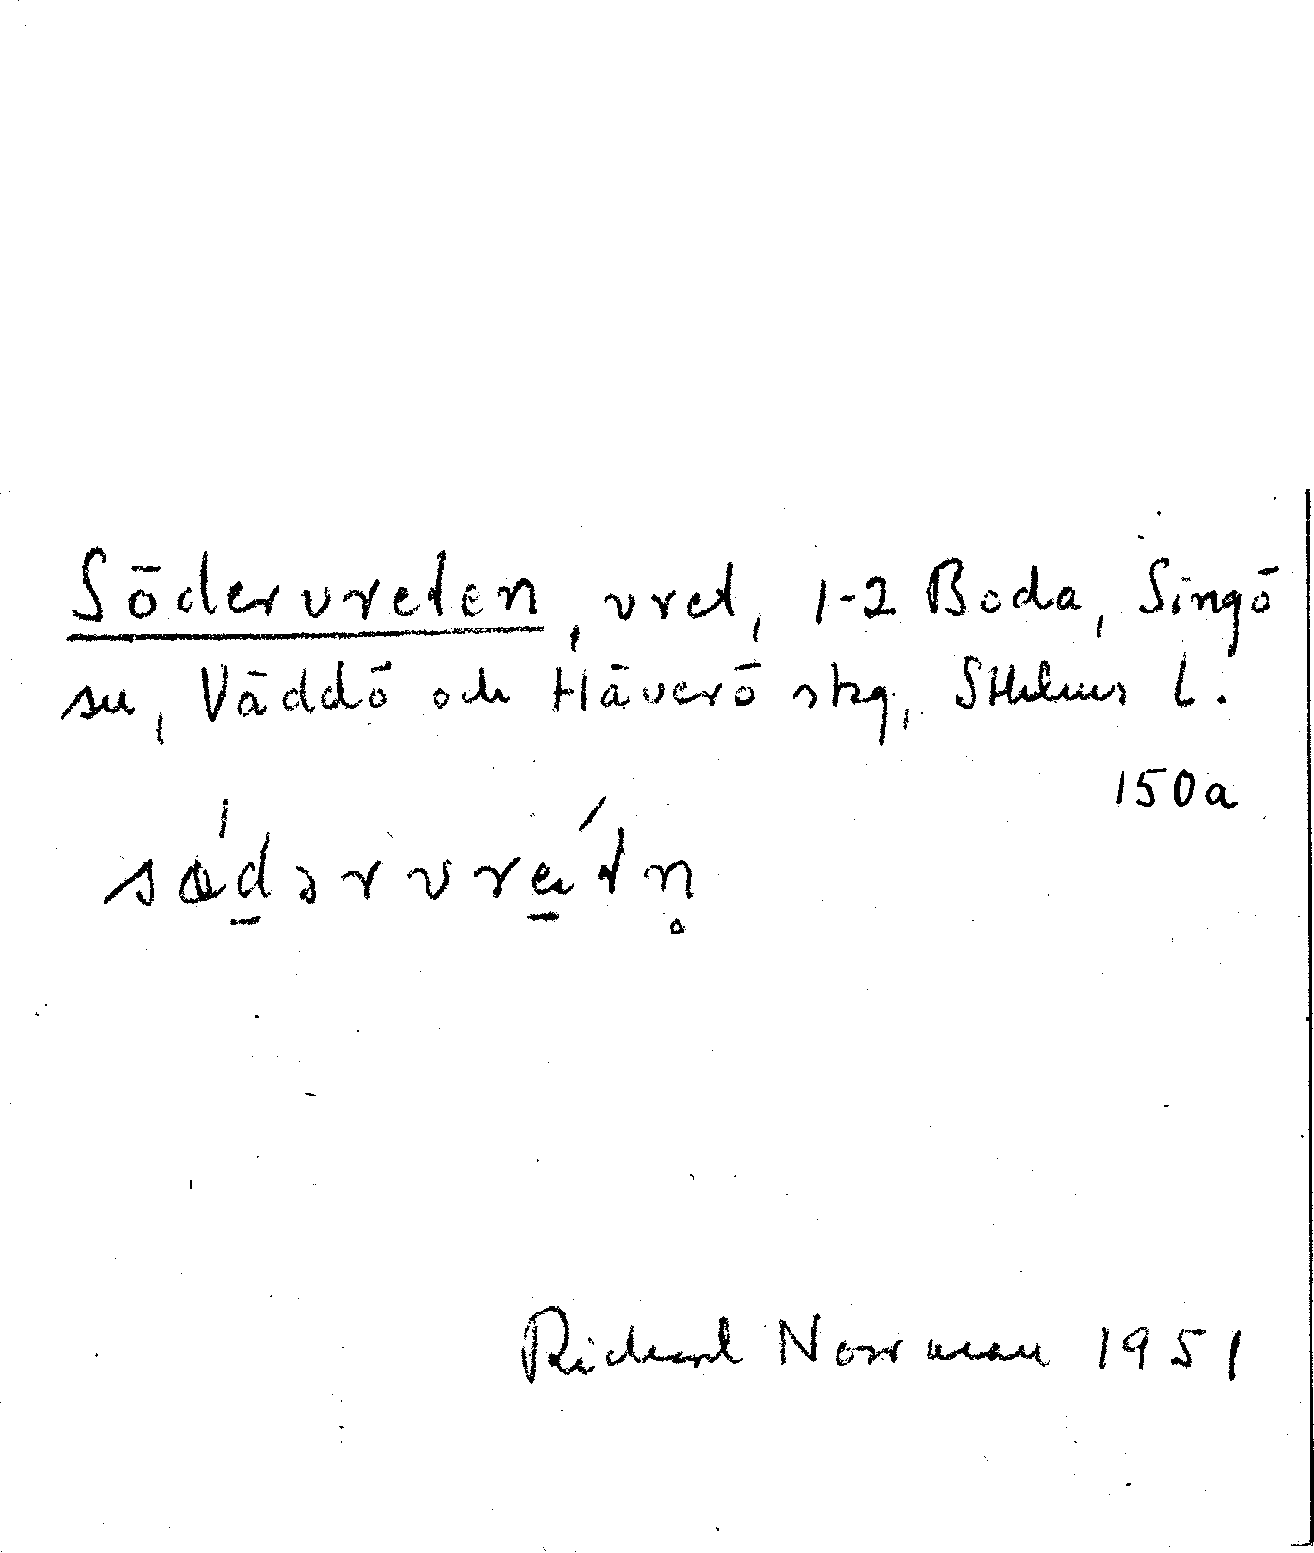 Södervreten, vret, 1-2 Boda, Singö
sn, Väddö och Häverö skg, Sthlms l.
150a
Richard Norrman 1951